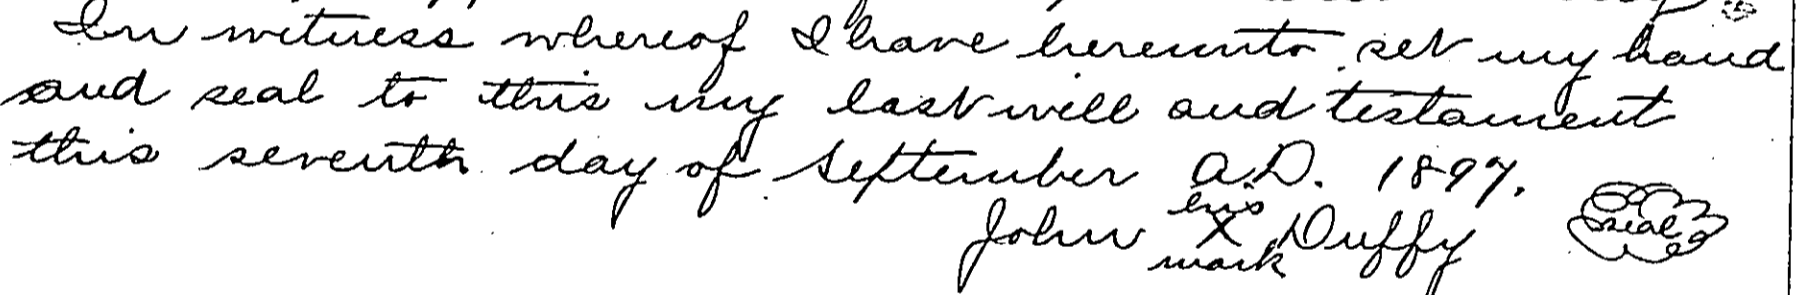 In witness whereof I have hereunto set my hand
and seal to this my last will and testament
this seventh day of September A.D. 1897.
his
John X Duffy seal
mark